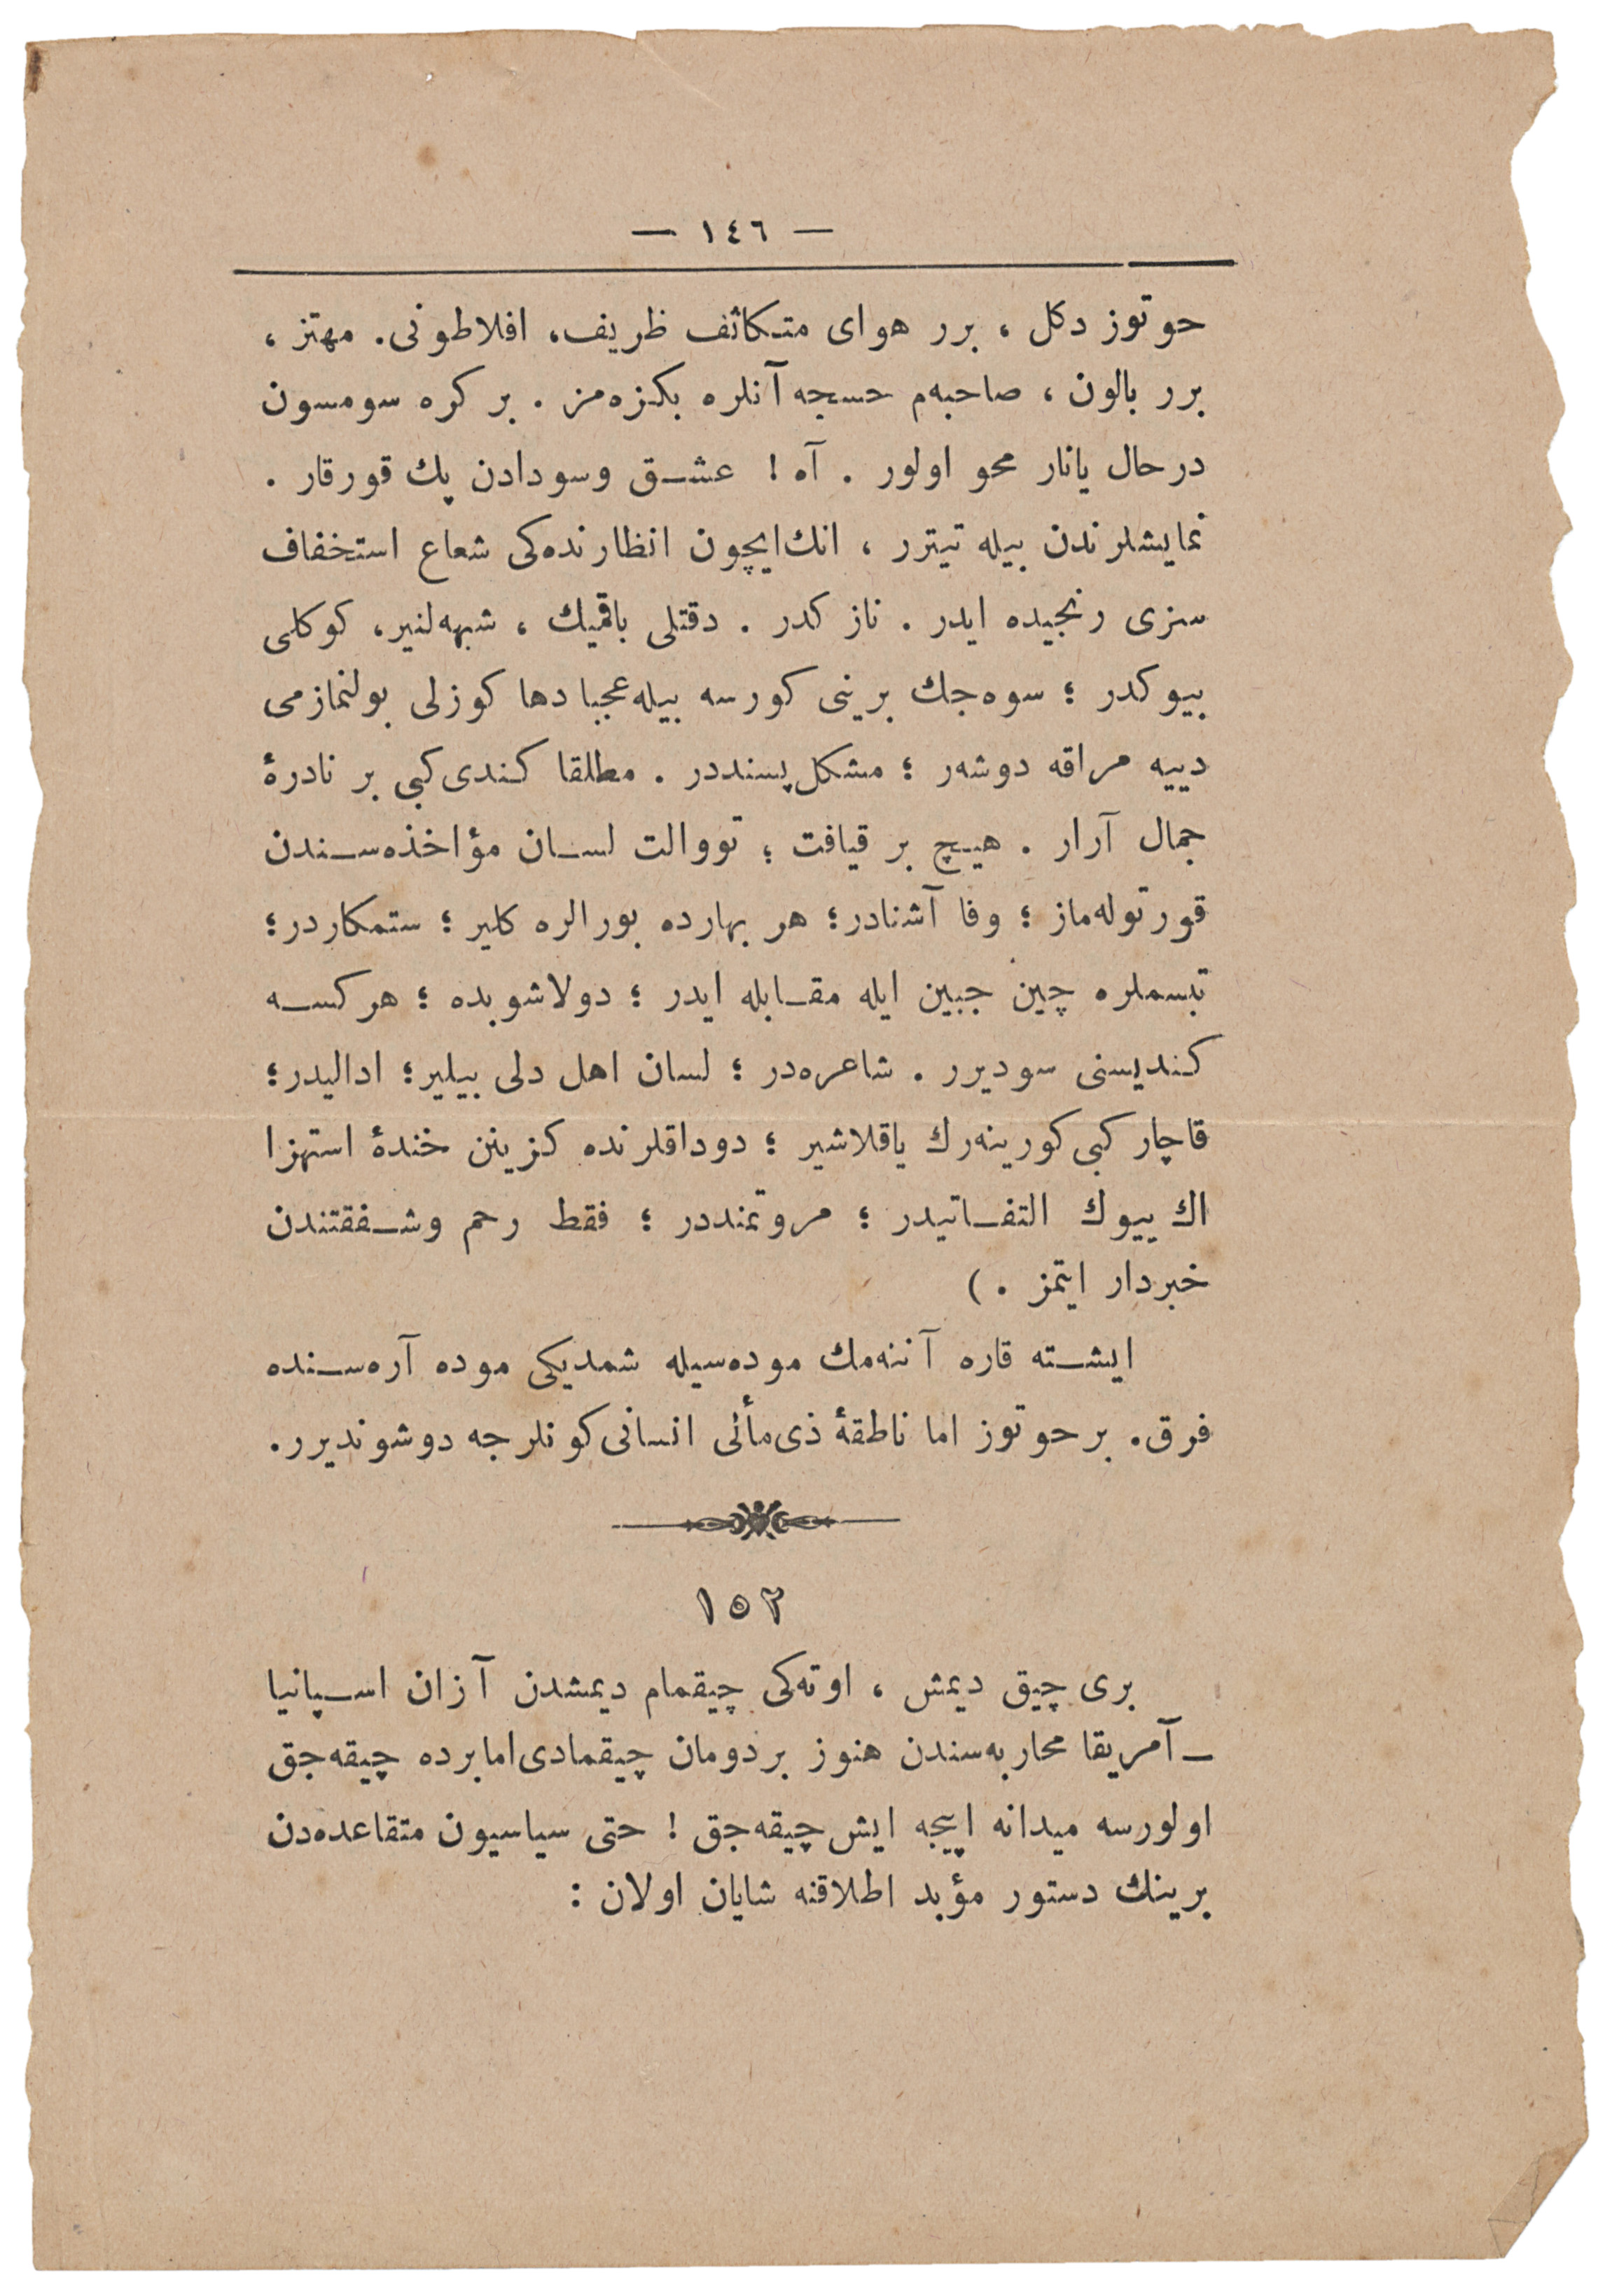 — ١٤٦ —
حوتوز دكل ، برر هوای متكاثف ظریف، افلاطونی. مهتز ،
برر بالون ، صاحبه‌م حسجه آنلره بكزه‌مز . بر كره سومسون
درحال یانار محو اولور . آه ! عشق وسودادن پك قورقار .
نمایشلرندن بیله تیترر ، انك‌ایچون انظارنده‌كی شعاع استخفاف
سزی رنجیده ایدر . نازكدر . دقتلی باقمیك ، شبهه‌لنیر، كوكلی
بیوكدر ؛ سوه‌جك برینی كورسه بیله عجبا دها كوزلی بولنمازمی
دییه مراقه دوشه‌ر ؛ مشكل‌پسنددر . مطلقا كندی كبی بر نادرهٔ
جمال آرار . هیچ بر قیافت ؛ تووالت لسان مؤاخذه‌سندن
قورتوله‌ماز ؛ وفا آشنادر؛ هر بهارده بورالره كلیر ؛ ستمكاردر؛
تبسملره چین جبین ایله مقابله ایدر ؛ دولاشوبده ؛ هركسه
كندیسنی سودیرر . شاعره‌در ؛ لسان اهل دلی بیلیر؛ ادالیدر؛
قاچار كبی كورینه‌رك یاقلاشیر ؛ دوداقلرنده كزینن خندهٔ استهزا
اك بیوك التفاتیدر ؛ مروتمنددر ؛ فقط رحم وشفقتندن
خبردار ایتمز . )
ایشته قاره آننه‌مك موده‌سیله شمدیكی موده آره‌سنده
فرق. برحوتوز اما ناطقهٔ ذی‌مألی انسانی كونلرجه دوشوندیرر.
١٥٢
بری چیق دیمش ، اوته‌كی چیقمام دیمشدن آزان اسپانیا
ـ آمریقا محاربه‌سندن هنوز بردومان چیقمادی اما برده چیقه‌جق
اولورسه میدانه اپیجه ایش چیقه‌جق ! حتی سیاسیون متقاعده‌دن
برینك دستور مؤبد اطلاقنه شایان اولان :